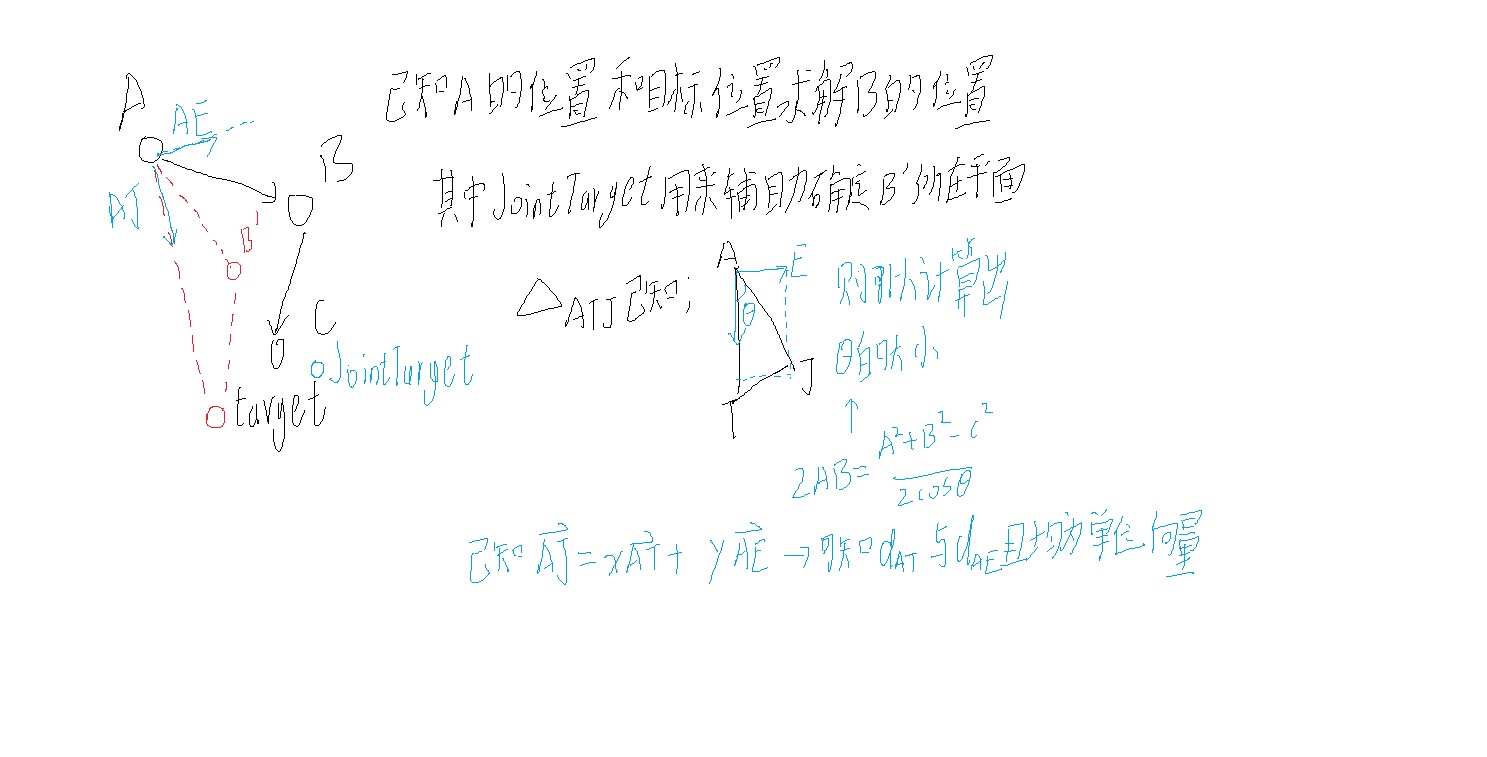 已知A的位置和目标位置求解B的位置
其中JointTarget用来辅助确定B'所在平面
A
AE
B
AJ
B'
C
JointTarget
target
△ATJ已知;
A
E
θ
J
T
则可以计算出
θ的大小
↑
2AB=A²+B²-C²/2cosθ
已知AJ=xAT+yAE→可知dAT与dAE且均为单位向量